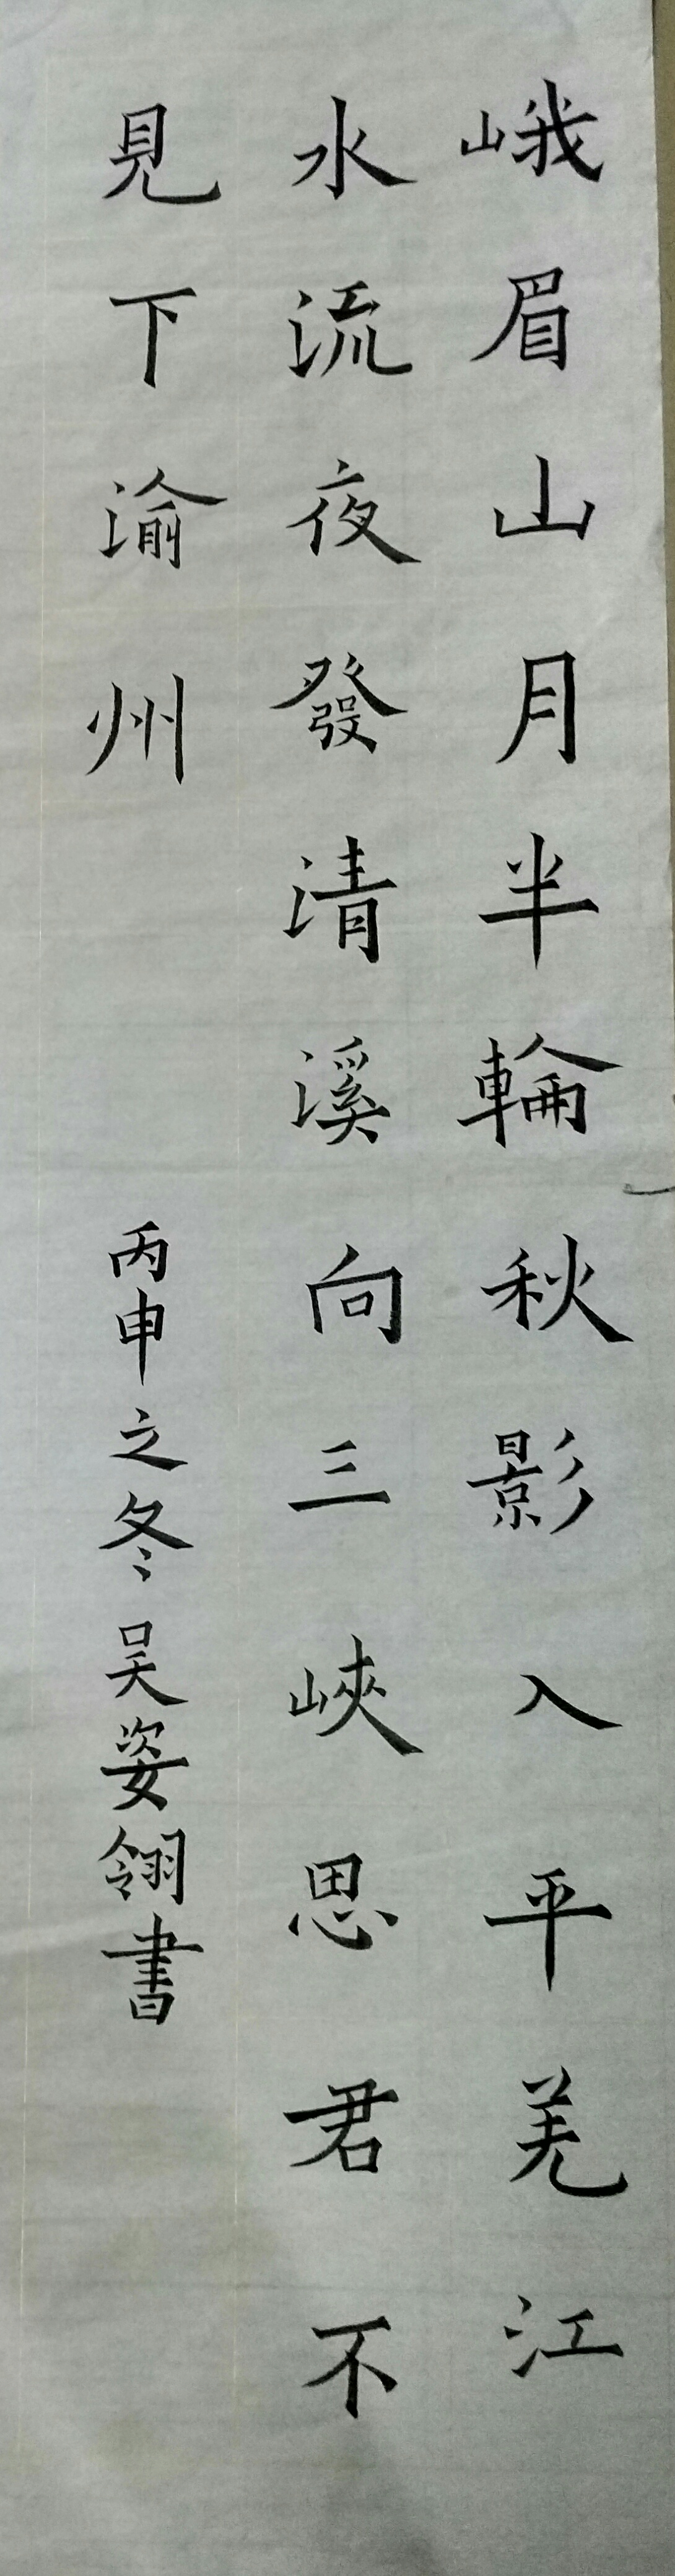 峨眉山月半輪秋影入平羌江
水流夜發清溪向三峽思君不
見下渝州
丙申之冬吴姿翎書